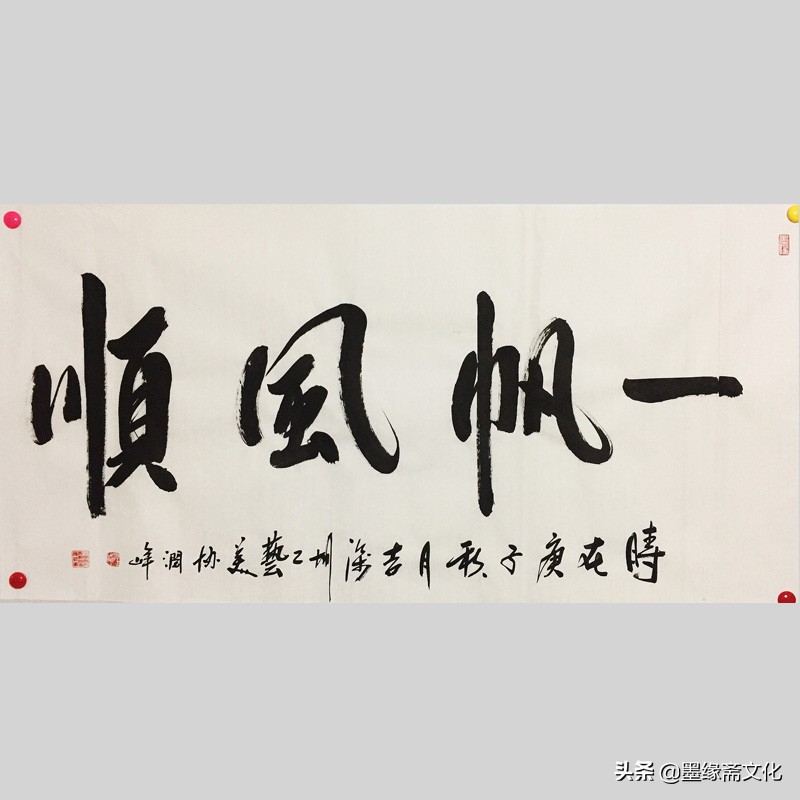 一帆風順
時在庚子秋月吉深圳工藝美協潤峰
头条 @墨缘斋文化